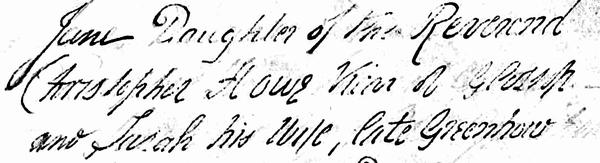 June Daughter of the Reverend
Christopher Howe Vicar of Glossop
and Sarah his Wife, late Greenhow